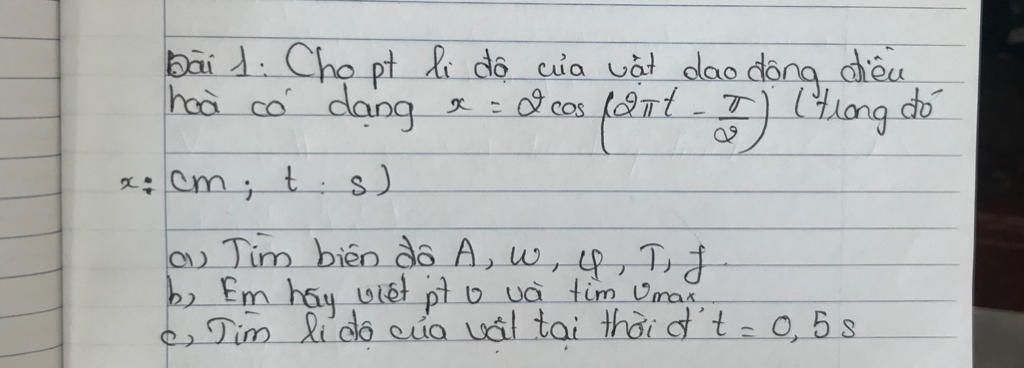 Bài 1: Cho pt li độ của vật dao động điều
hoà có dạng x = 2cos (2πt - π/2) (trong đó
x: cm; t: s)
a) Tìm biên độ A, ω, φ, T, f.
b) Em hãy viết pt v và tìm vmax.
c) Tìm li độ của vật tại thời đ' t = 0,5s